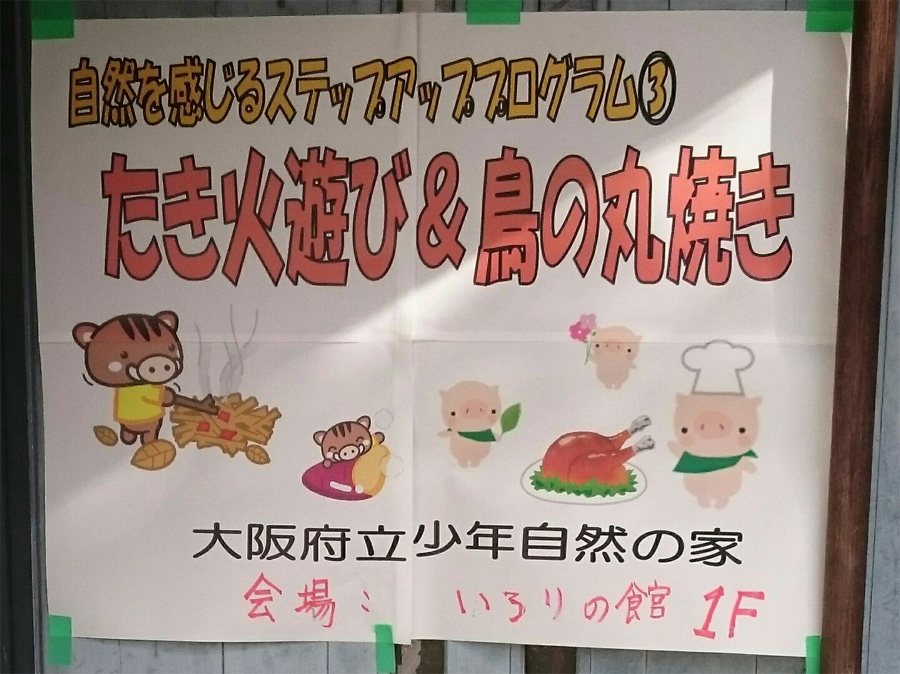 自然を感じるステップアッププログラム③
たき火遊び&鳥の丸焼き
大阪府立少年自然の家
会場： いろりの館 1F